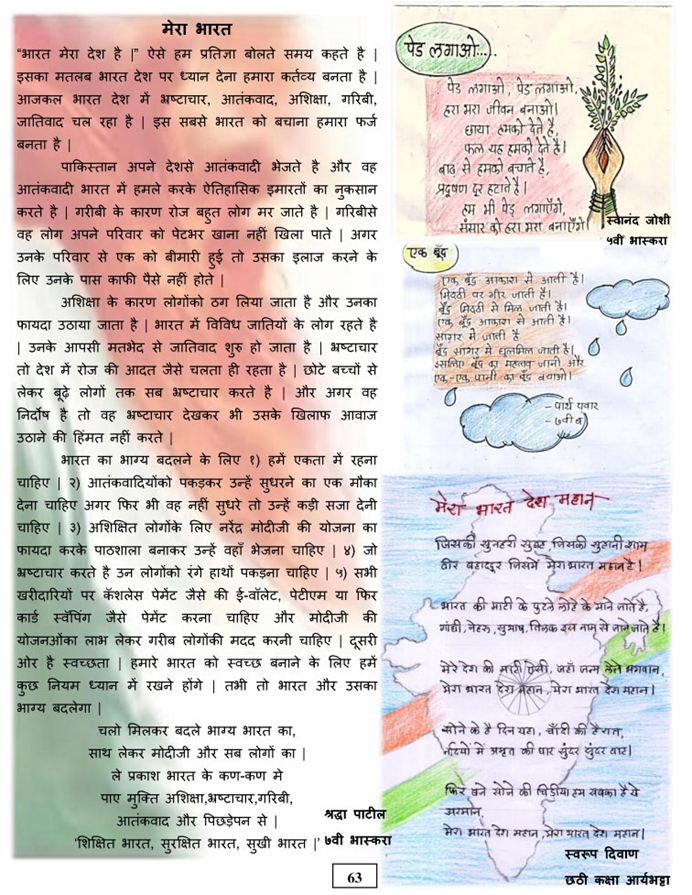 मेरा भारत
“भारत मेरा देश है |” ऐसे हम प्रतिज्ञा बोलते समय कहते है |
इसका मतलब भारत देश पर ध्यान देना हमारा कर्तव्य बनता है |
आजकल भारत देश में भ्रष्टाचार, आतंकवाद, अशिक्षा, गरिबी,
जातिवाद चल रहा है | इस सबसे भारत को बचाना हमारा फर्ज
बनता है |
पाकिस्तान अपने देशसे आतंकवादी भेजते है और वह
आतंकवादी भारत में हमले करके ऐतिहासिक इमारतों का नुकसान
करते है | गरीबी के कारण रोज बहुत लोग मर जाते है | गरिबीसे
वह लोग अपने परिवार को पेटभर खाना नहीं खिला पाते | अगर
उनके परिवार से एक को बीमारी हुई तो उसका इलाज करने के
लिए उनके पास काफी पैसे नहीं होते |
अशिक्षा के कारण लोगोंको ठग लिया जाता है और उनका
फायदा उठाया जाता है | भारत में विविध जातियों के लोग रहते है
| उनके आपसी मतभेद से जातिवाद शुरु हो जाता है | भ्रष्टाचार
तो देश में रोज की आदत जैसे चलता ही रहता है | छोटे बच्चों से
लेकर बूढ़े लोगों तक सब भ्रष्टाचार करते है | और अगर वह
निर्दोष है तो वह भ्रष्टाचार देखकर भी उसके खिलाफ आवाज
उठाने की हिंमत नहीं करते |
भारत का भाग्य बदलने के लिए १) हमें एकता में रहना
चाहिए | २) आतंकवादियोंको पकड़कर उन्हें सुधरने का एक मौका
देना चाहिए अगर फिर भी वह नहीं सुधरे तो उन्हें कड़ी सजा देनी
चाहिए | ३) अशिक्षित लोगोंके लिए नरेंद्र मोदीजी की योजना का
फायदा करके पाठशाला बनाकर उन्हें वहाँ भेजना चाहिए | ४) जो
भ्रष्टाचार करते है उन लोगोंको रंगे हाथों पकड़ना चाहिए | ५) सभी
खरीदारियों पर कॅशलेस पेमेंट जैसे की ई-वॉलेट, पेटीएम या फिर
कार्ड स्वॅपिंग जैसे पेमेंट करना चाहिए और मोदीजी की
योजनओंका लाभ लेकर गरीब लोगोंकी मदद करनी चाहिए | दूसरी
ओर है स्वच्छता | हमारे भारत को स्वच्छ बनाने के लिए हमें
कुछ नियम ध्यान में रखने होंगे | तभी तो भारत और उसका
भाग्य बदलेगा |
चलो मिलकर बदले भाग्य भारत का,
साथ लेकर मोदीजी और सब लोगों का |
ले प्रकाश भारत के कण-कण मे
पाए मुक्ति अशिक्षा,भ्रष्टाचार,गरिबी,
आतंकवाद और पिछड़ेपन से |
‘शिक्षित भारत, सुरक्षित भारत, सुखी भारत |’
श्रद्धा पाटील
७वी भास्करा
पेड लगाओ....
पेड लगाओ, पेड लगाओ,
हरा भरा जीवन बनाओ।
छाया हमको देते है,
फल यह हमको देते है।
बाढ से हमको बचाते है,
प्रदूषण दूर हटाते है।
हम भी पेड लगाएँगे,
संसार को हरा भरा बनाएँगे।
स्वानंद जोशी
५वी भास्करा
एक बूँद
एक बूँद आकाश से आती है।
मिट्टी पर गीर जाती है।
बूँद मिट्टी से मिल जाती है।
एक बूँद आकाश से आती है।
सागर में जाती है
बूँद सागर में घुलमिल जाती है।
इसलिए बूँद का महत्व जानो और
एक-एक पानी का बूँद बचाओ।
- पार्थ पवार
- ७वी ब
मेरा भारत देश महान
जिसकी सुनहरी सुबह, जिसकी सुहानी शाम
वीर बहाद्दूर जिसमें मेरा भारत महान है।
भारत की माटी के पुतले लोहे के माने जाते है,
गांधी, नेहरू, सुभाष, तिलक इस नाम से जाने जाते है।
मेरे देश की माटी ऐसी, जहाँ जन्म लेते भगवान,
मेरा भारत देश महान, मेरा भारत देश महान।
सोने के है दिन यहा, चाँदी की है रात,
नदियों में अमृत की धार सुंदर सुंदर
फिर बने सोने की चिडीया हम सबका है ये
अरमान,
मेरा भारत देश महान, मेरा भारत देश महान।
स्वरूप दिवाण
छठी कक्षा आर्यभट्टा
63